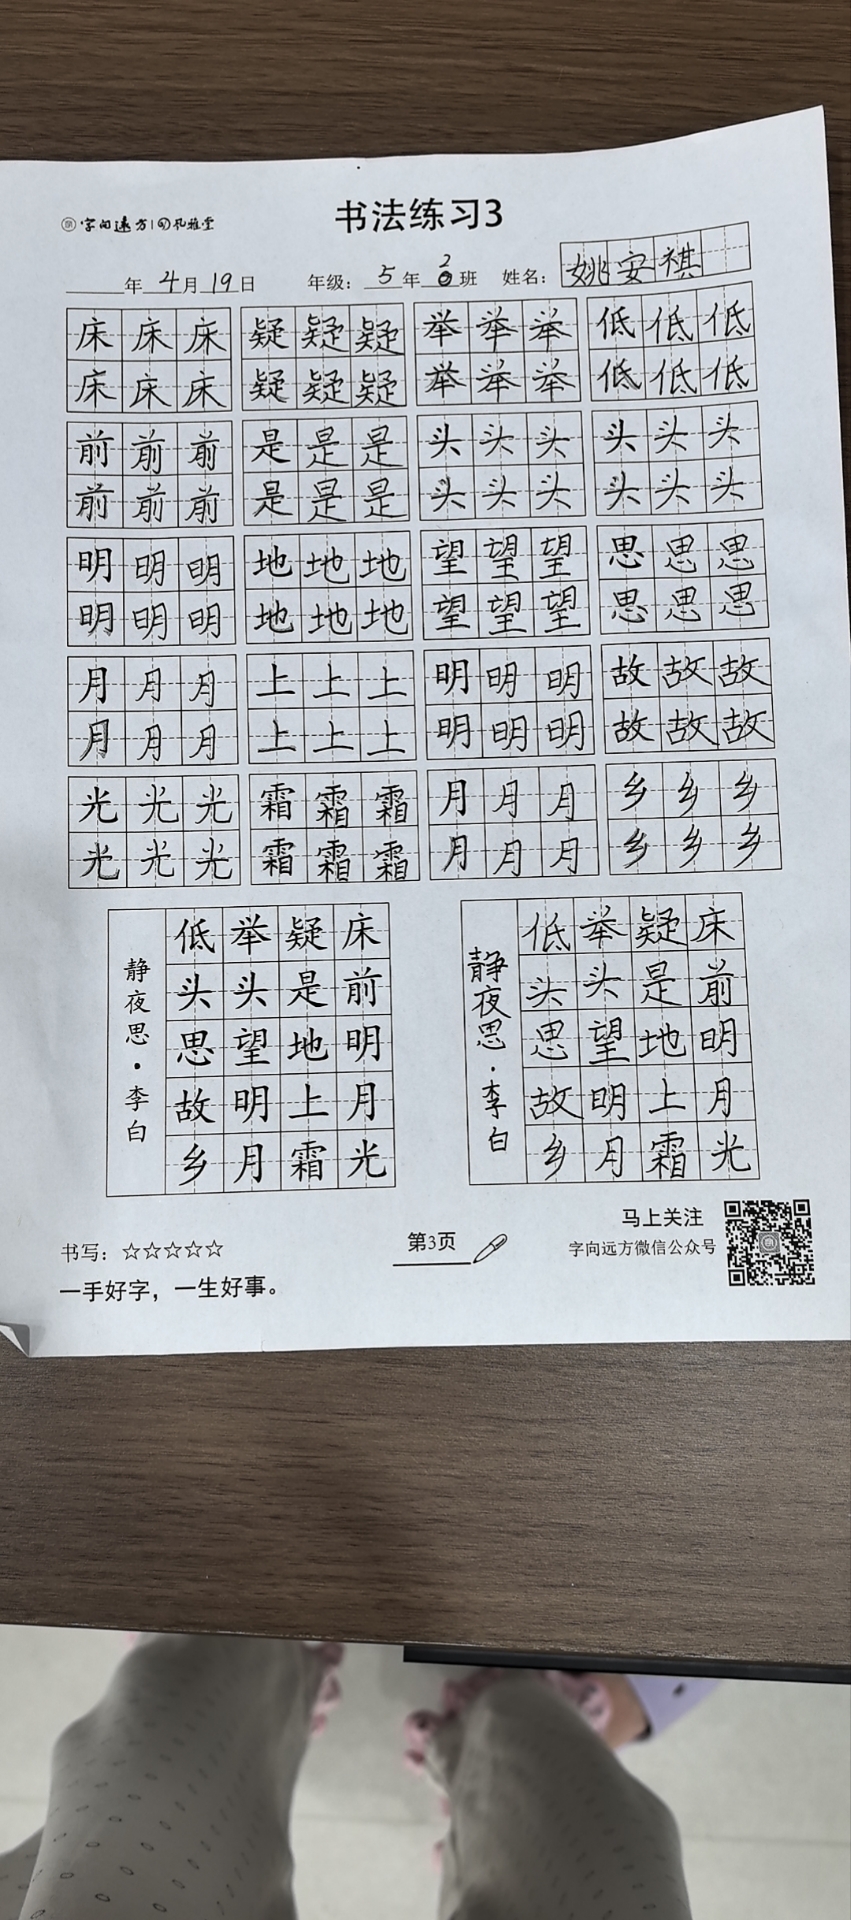 字向远方 孔雅堂
书法练习3
年 4月 19日 年级：5年 2班 姓名：姚安祺
床床床 疑疑疑 举举举 低低低
床床床 疑疑疑 举举举 低低低
前前前 是是是 头头头 头头头
前前前 是是是 头头头 头头头
明明明 地地地 望望望 思思思
明明明 地地地 望望望 思思思
月月月 上上上 明明明 故故故
月月月 上上上 明明明 故故故
光光光 霜霜霜 月月月 乡乡乡
光光光 霜霜霜 月月月 乡乡乡
床前明月光
疑是地上霜
举头望明月
低头思故乡
静夜思·李白
床前明月光
疑是地上霜
举头望明月
低头思故乡
静夜思·李白
书写：☆☆☆☆☆
一手好字，一生好事。
第3页
马上关注
字向远方微信公众号